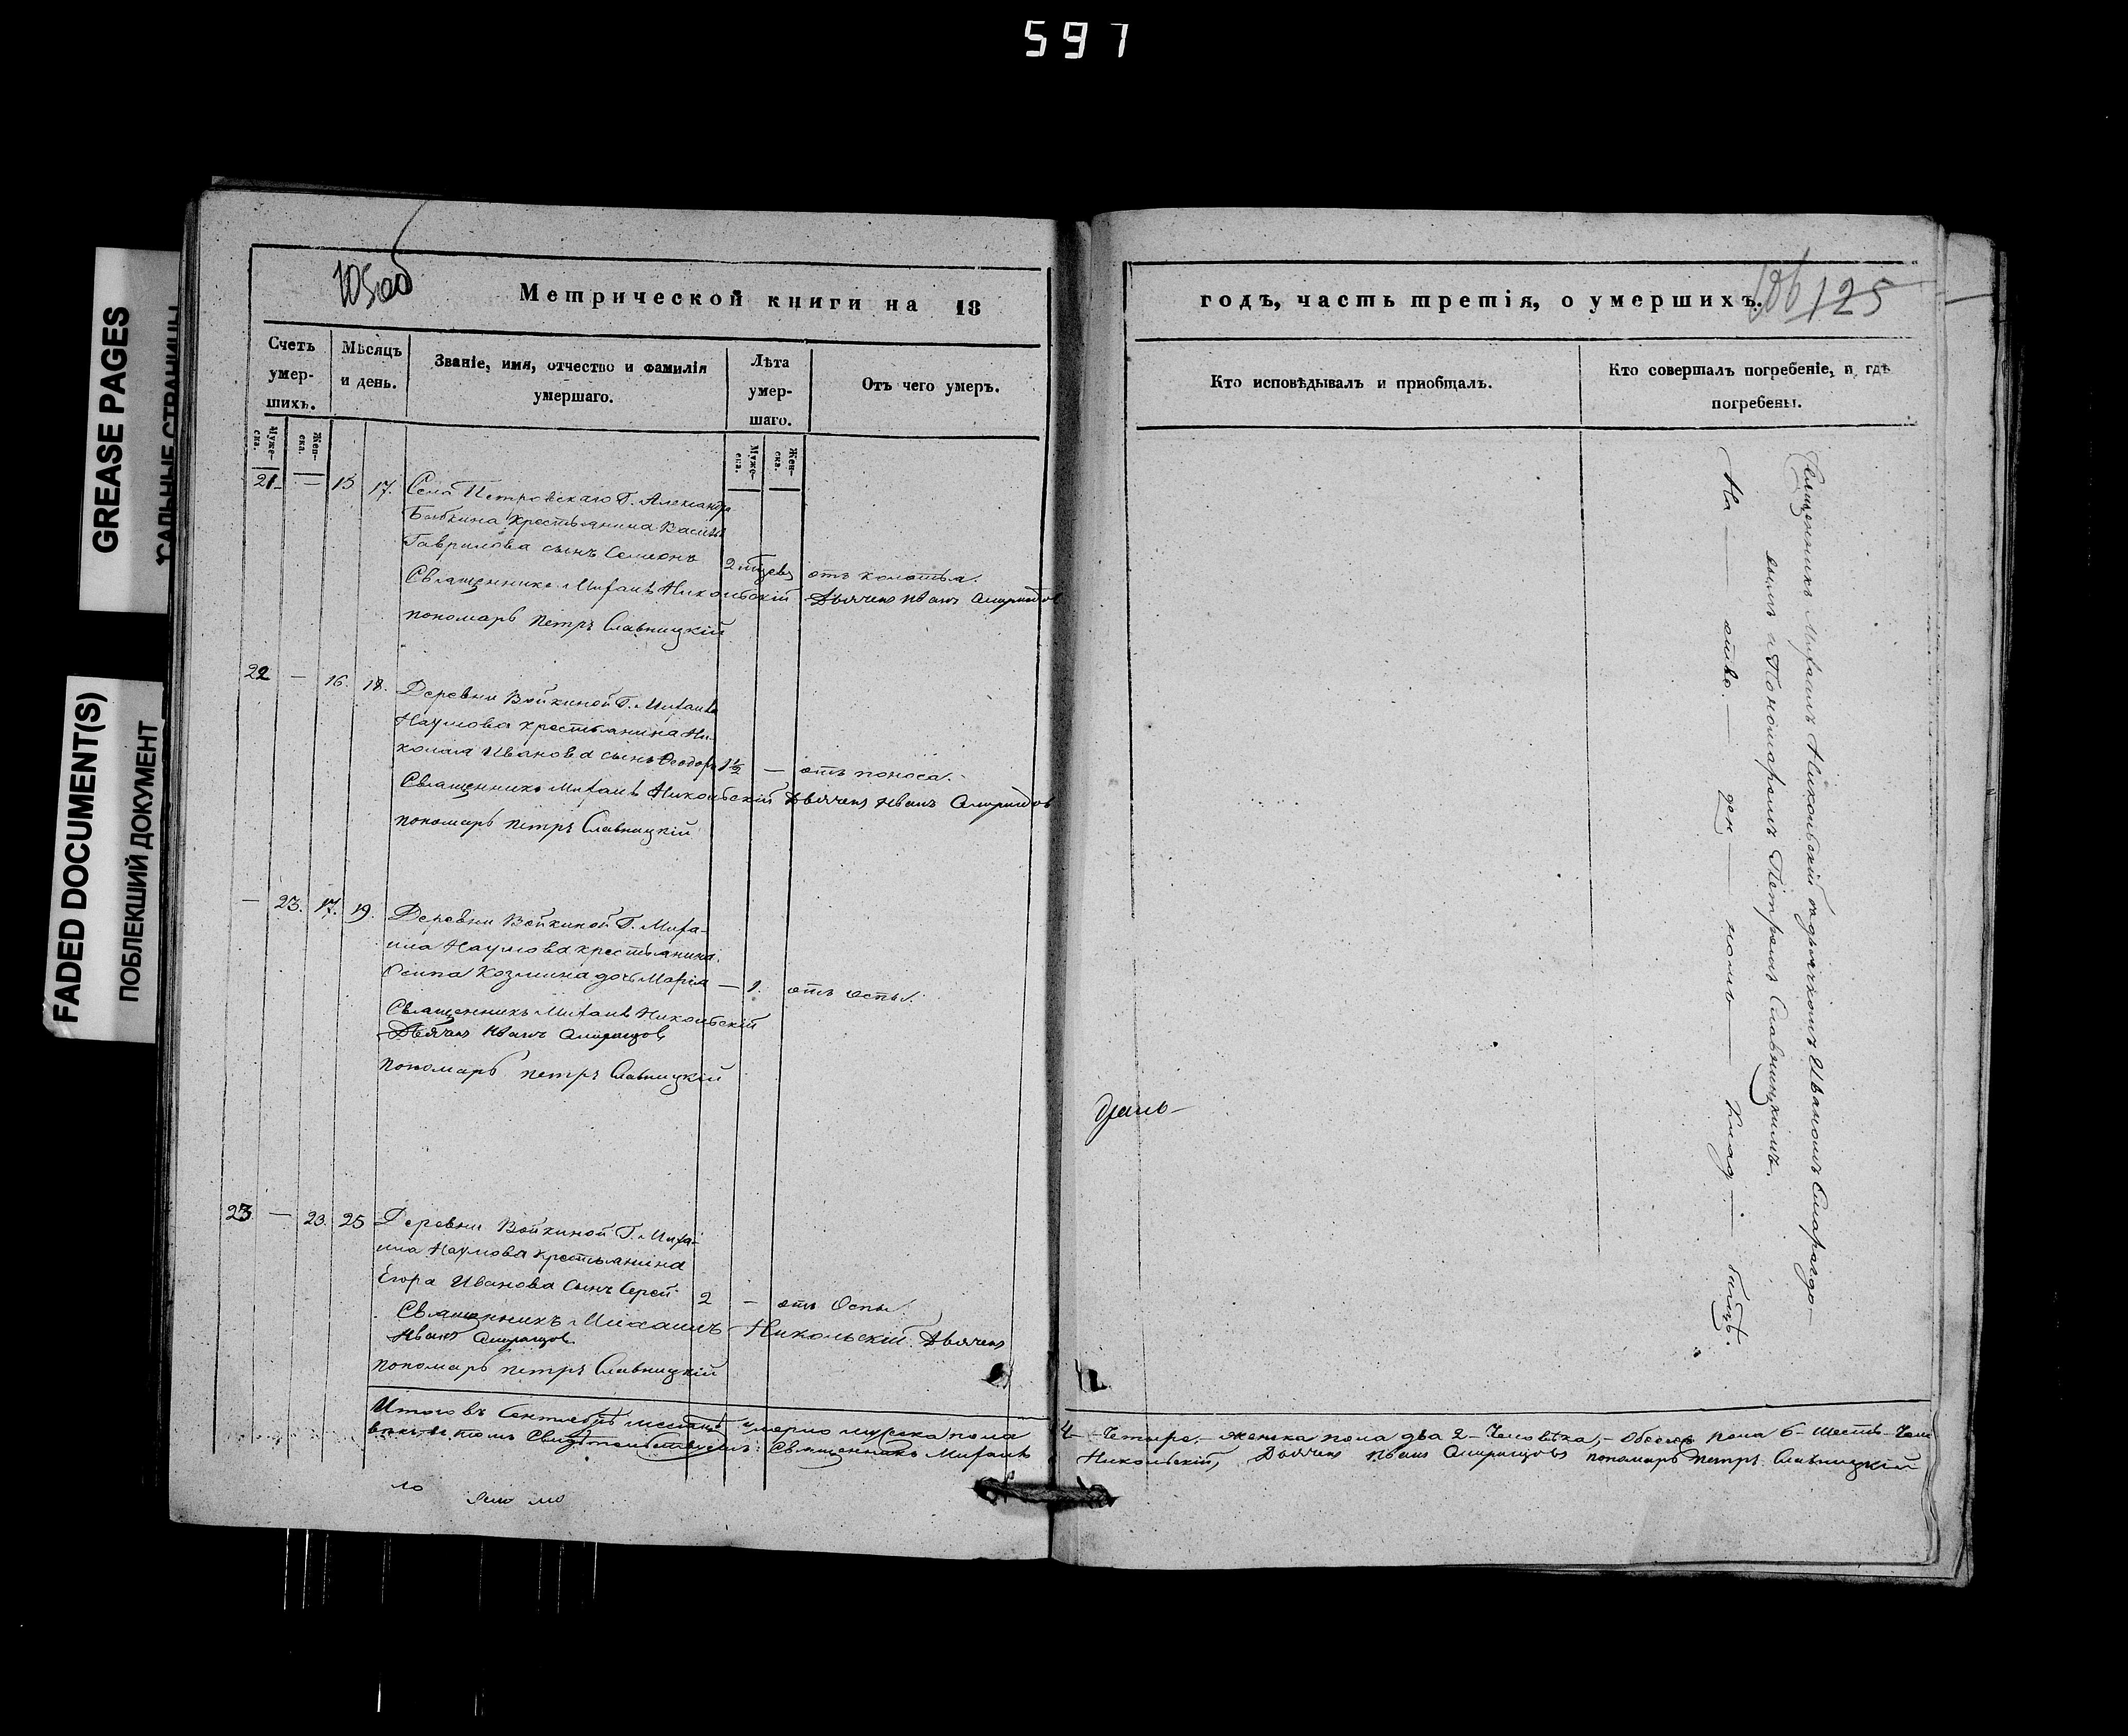 597
GREASE PAGES
САЛЬНЫЕ СТРАНИЦЫ
FADED DOCUMENT(S)
ПОБЛЕКШИЙ ДОКУМЕНТ
105об
Метрической книги на 18
Счетъ умер-шихъ.
Мѣсяцъ и день.
Званіе, имя, отчество и фамилія умершаго.
Лѣта умер-шаго.
Отъ чего умеръ.
Муже-ска.
Жен-ска.
Муже-ска.
Жен-ска.
21 — 15 17. Села Петровскаго Г. Александра
Бабкина крестьянина Василья
Гаврилова сынъ Семенъ
2 отъ колотья.
Священникъ Михаилъ Никольскій Дьячекъ Иванъ
пономарь Петръ Славницкій
22 — 16. 18. Деревни Войкиной Г. Михаила
Наумова крестьянина Ни-
колая Иванова сынъ Ѳеодоръ 1½ — отъ поноса.
Священникъ Михаилъ Никольскій Дьячекъ Иванъ
пономарь Петръ Славницкій
— 23. 17. 19. Деревни Войкиной Г. Миха-
ила Наумова крестьянина
Осипа Козмина дочь Марія — 1. отъ оспы.
Священникъ Михаилъ Никольскій
Дьячекъ Иванъ
пономарь Петръ Славницкій
23 — 23. 25 Деревни Войкиной Г. Миха-
ила Наумова крестьянина
Егора Иванова сынъ Сергей 2 — отъ Оспы.
Священникъ Михаилъ Никольскій Дьячекъ
Иванъ
пономарь Петръ Славницкій
Итого въ Сентябрѣ месяцѣ умерло мужска пола
въ томъ Свидѣтельствуемъ: Священникъ Михаилъ
годъ, часть третія, о умершихъ.
106
125
Кто исповѣдывалъ и пріобщалъ.
Кто совершалъ погребеніе, и гдѣ погребены.
Священникъ Михаилъ Никольскій съ дьячкомъ Иваномъ Смарагдо-
вымъ и Пономаремъ Петромъ Славницкимъ.
На — отве — ден — номъ — клад — бищѣ.
4 Четыре, — женска пола два 2 — Человѣка, — Обоего пола 6 — шесть — Чело
Никольскій, Дьячекъ Иванъ пономарь Петръ Славницкій